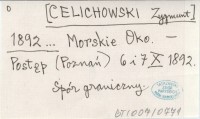 0
[CELICHOWSKI Zygmunt]
1892... Morskie Oko. —
Postęp (Poznań) 6 i 7 X 1892.
Spór graniczny.